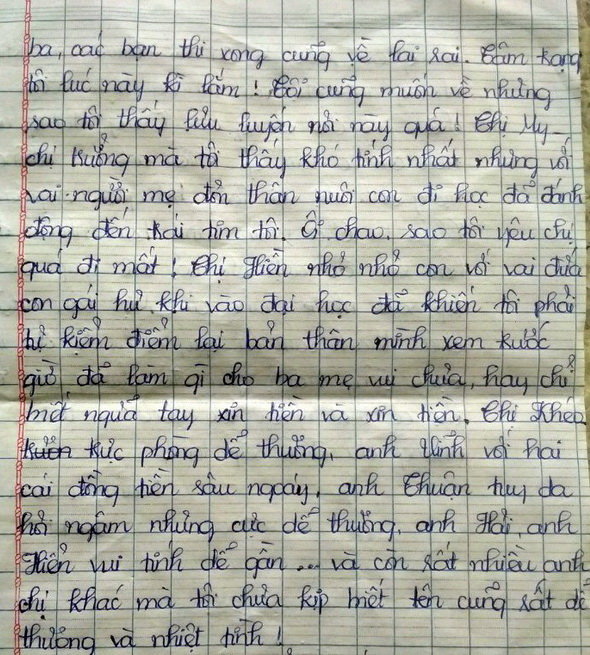 ba, các bạn thi xong cũng về lai rai. Tâm trạng
tôi lúc này kì lắm! Tôi cũng muốn về nhưng
sao tôi thấy lưu luyến nơi này quá! Chị My -
chị trưởng mà tôi thấy khó tính nhất nhưng với
vai người mẹ đơn thân nuôi con đi học đã đánh
động đến trái tim tôi. Ôi chao, sao tôi yêu chị
quá đi mất! Chị Hiền nhỏ nhỏ con với vai đứa
con gái hư khi vào đại học đã khiến tôi phải
tự kiểm điểm lại bản thân mình xem trước
giờ đã làm gì cho ba mẹ vui chưa, hay chỉ
biết ngửa tay xin tiền và xin tiền. Chị Khép
trực phòng dễ thương, anh Vinh với hai
cái đồng tiền sâu ngoay, anh Thuận tuy da
hơi ngâm nhưng cực dễ thương, anh Hải, anh
Hiển vui tính dễ gần ... và còn rất nhiều anh
chị khác mà tôi chưa kịp biết tên cũng rất dễ
thương và nhiệt tình!